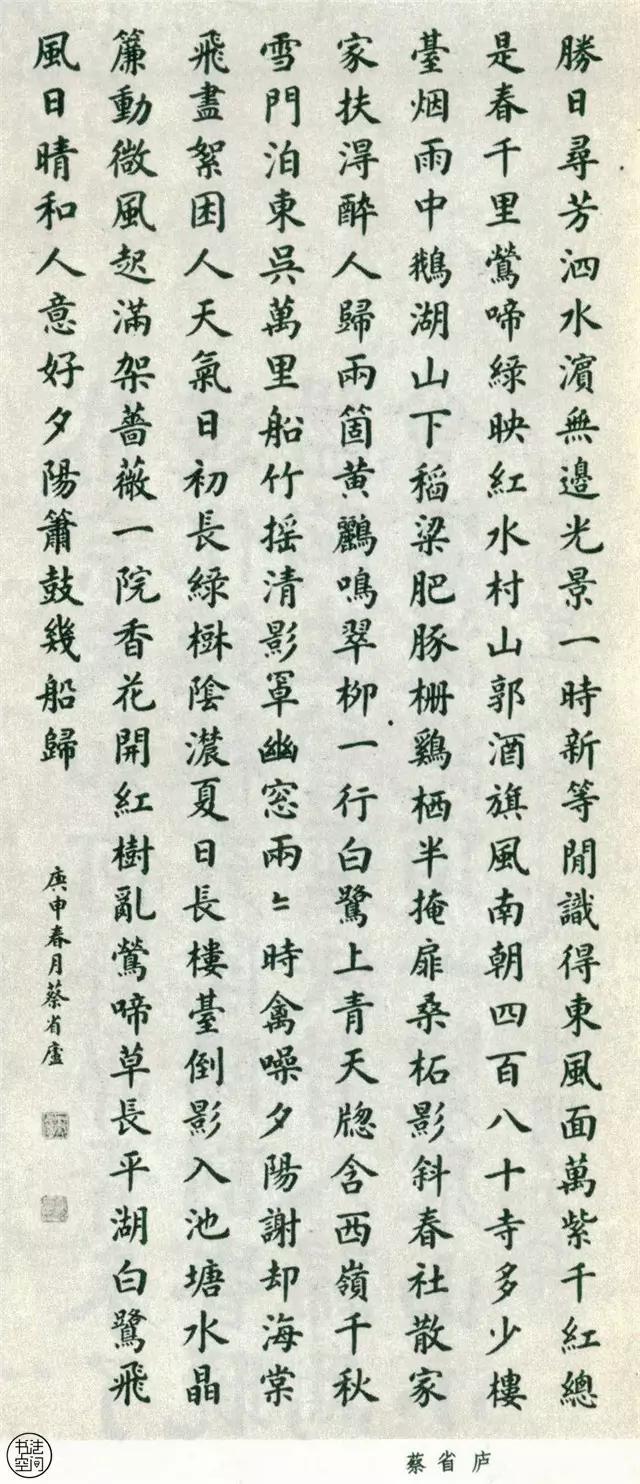 勝日尋芳泗水濱無邊光景一時新等閒識得東風面萬紫千紅總
是春千里鶯啼綠映紅水村山郭酒旗風南朝四百八十寺多少樓
臺烟雨中鵝湖山下稻粱肥豚栅鷄栖半掩扉桑柘影斜春社散家
家扶淂醉人歸兩箇黃鸝鳴翠柳一行白鷺上青天牕含西嶺千秋
雪門泊東吳萬里船竹摇清影罩幽窓兩〻時禽噪夕陽謝却海棠
飛盡絮困人天氣日初長綠樹陰濃夏日長樓臺倒影入池塘水晶
簾動微風起滿架薔薇一院香花開紅樹亂鶯啼草長平湖白鷺飛
風日晴和人意好夕陽簫鼓幾船歸
庚申春月蔡省廬
蔡省庐
书法空间